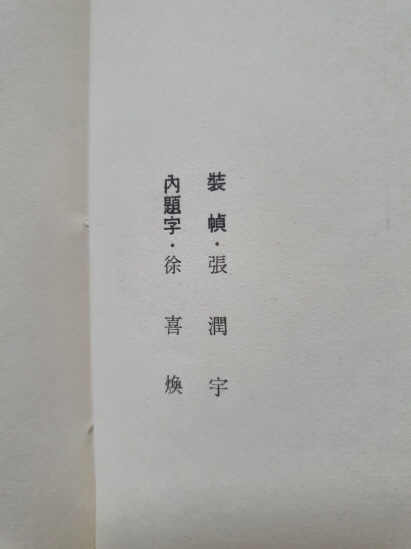 裝幀·張潤宇
內題字·徐喜煥